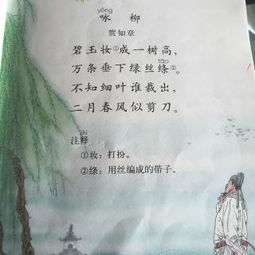 yǒng
咏 柳
贺知章
碧玉妆①成一树高，
万条垂下绿丝绦②。
tāo
不知细叶谁裁出，
二月春风似剪刀。
shì
注释
①妆：打扮。
②绦：用丝编成的带子。